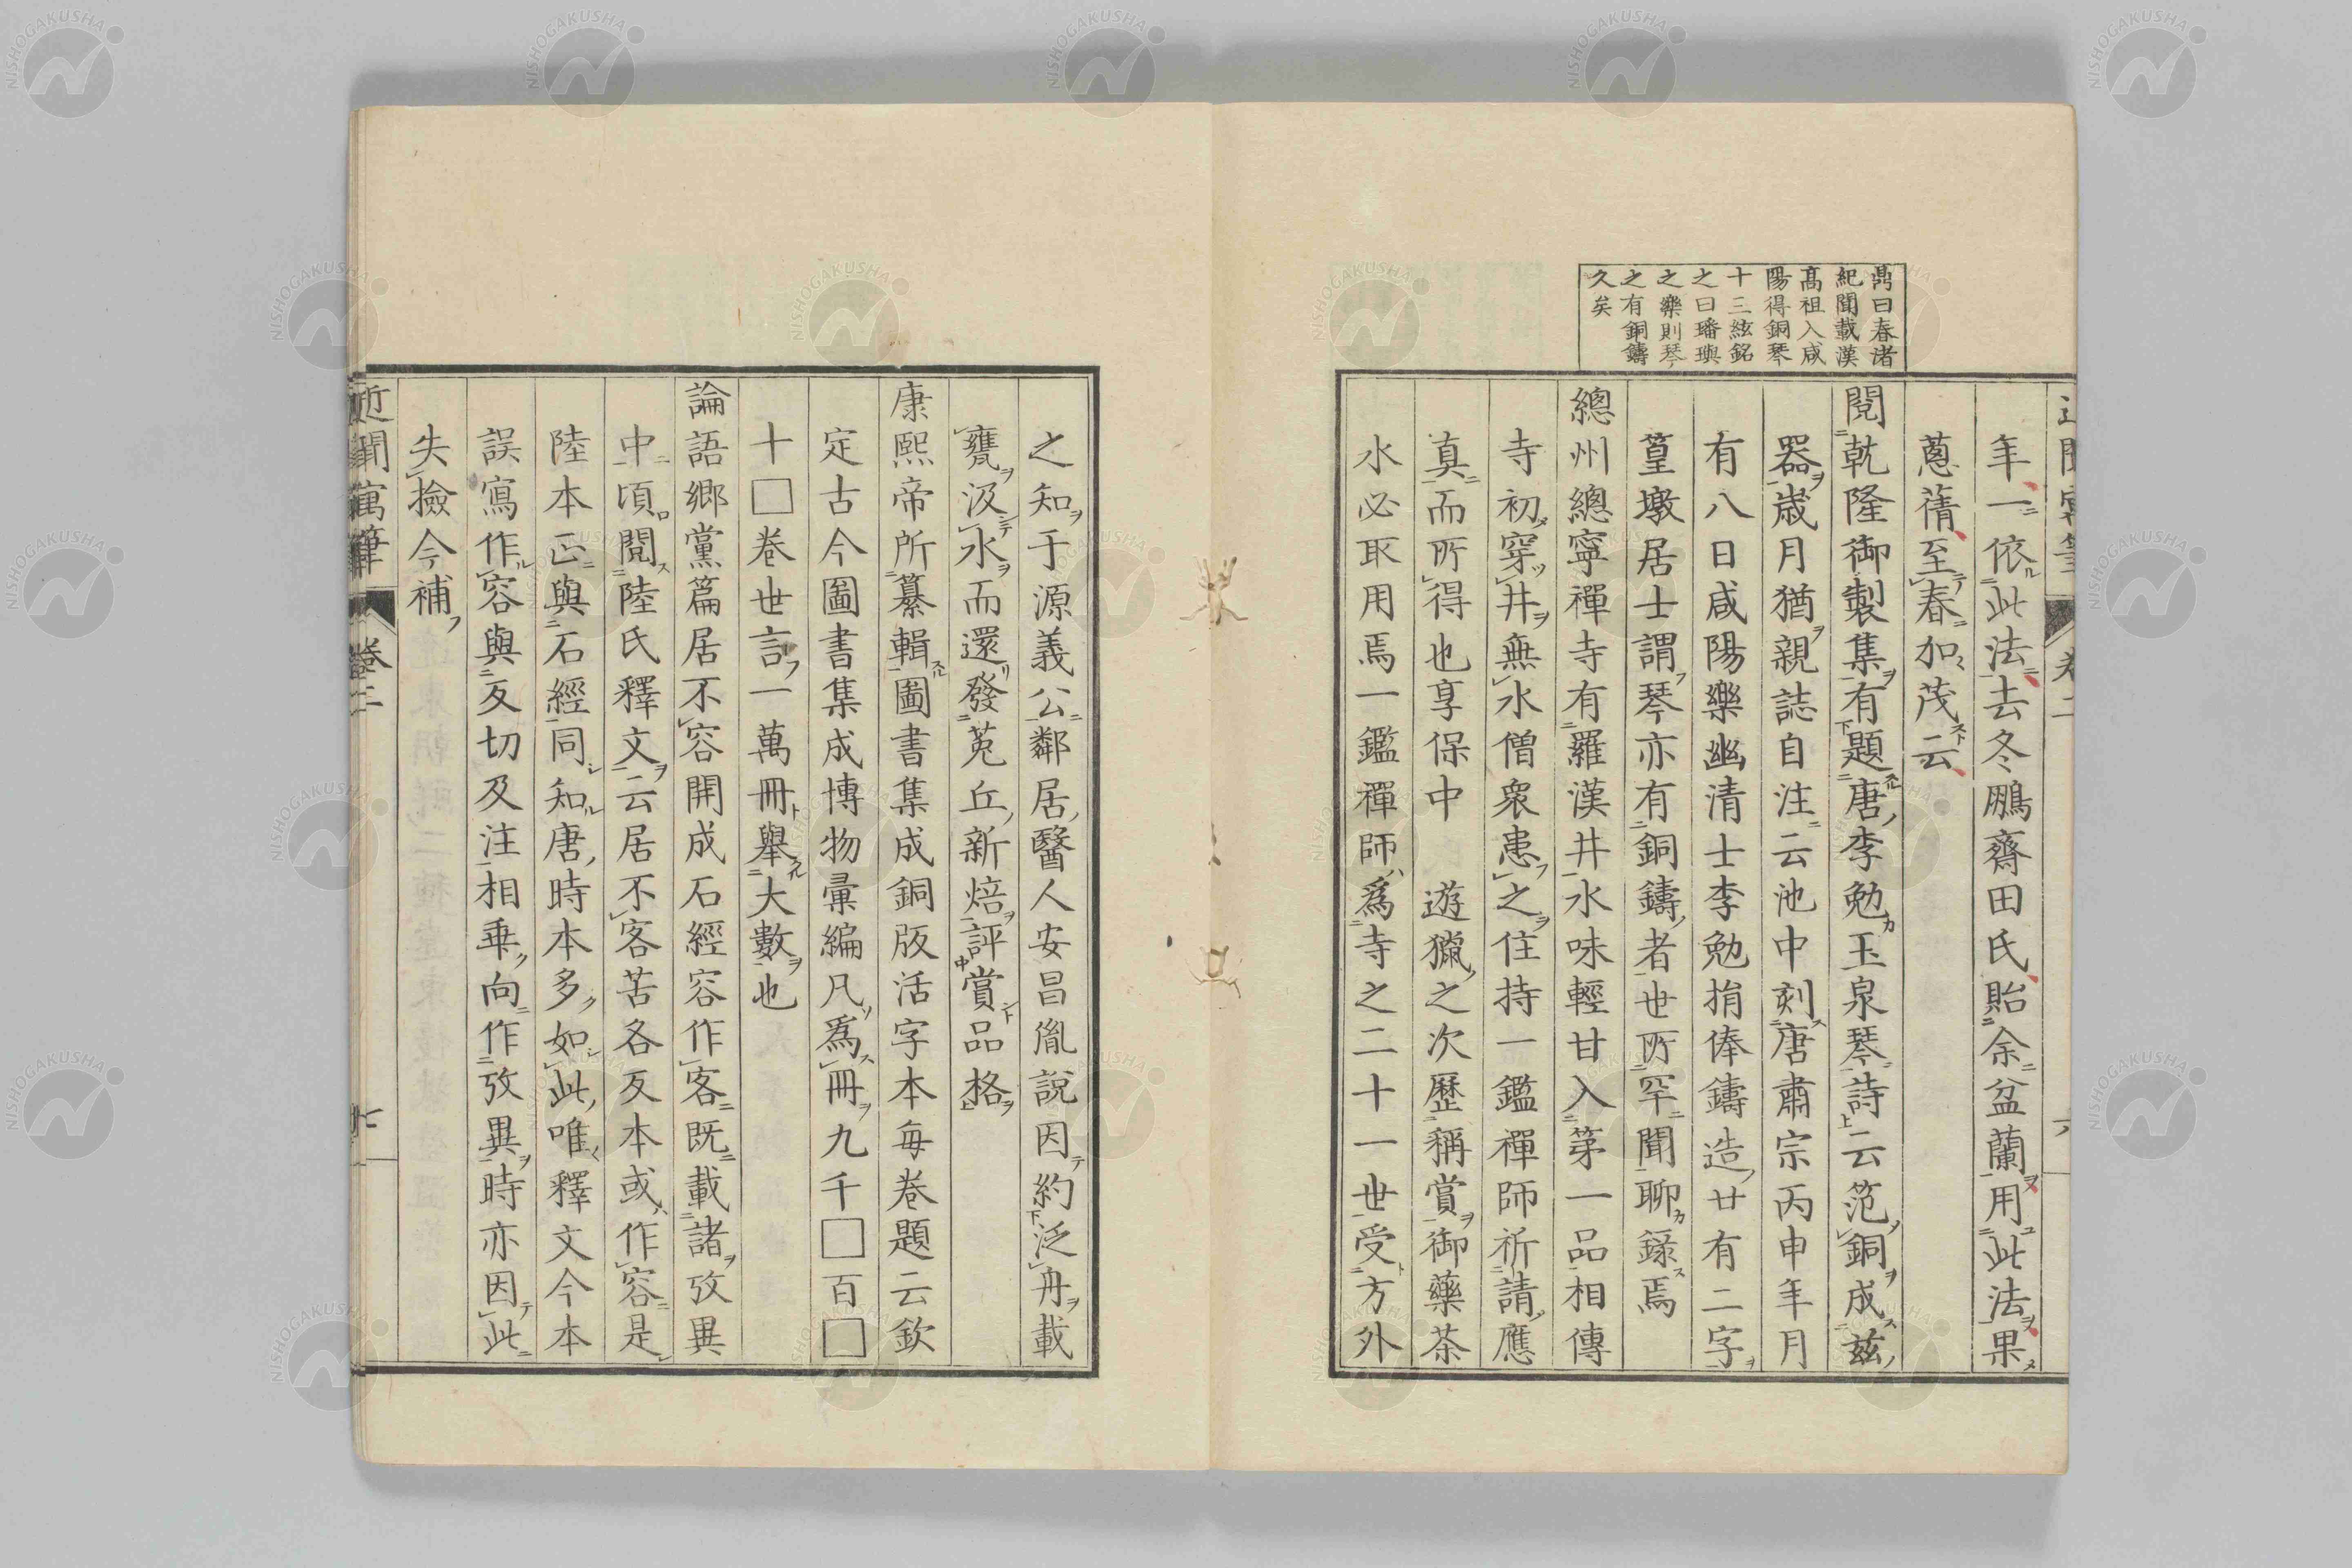 鼎曰春渚
紀聞載漢
髙祖入咸
陽得銅琴
十三絃銘
之曰璠璵
之樂則琴
之有銅鑄
久矣
年一依此法去冬鵬齋田氏貽余盆蘭用此法果
蔥蒨至春加茂云
閱乾隆御製集有題唐李勉玉泉琴詩云笵銅成茲
器歲月猶親誌自注云池中刻唐肅宗丙申年月
有八日咸陽樂幽清士李勉捐俸鑄造廿有二字
篁墩居士謂琴亦有銅鑄者世所罕聞聊錄焉
總州總寧禪寺有羅漢井水味輕甘入第一品相傳
寺初穿井無水僧衆患之住持一鑑禪師祈請應
真而所得也享保中 遊獵之次歷稱賞御藥茶
水必取用焉一鑑禪師爲寺之二十一世受方外
之知于源義公鄰居醫人安昌胤說因約泛舟載
甕汲水而還發菟丘新焙評賞品格
康熙帝所纂輯圖書集成銅版活字本每卷題云欽
定古今圖書集成博物彙編凡爲冊九千□百□
十□卷世言一萬冊舉大數也
論語鄉黨篇居不容開成石經容作客既載諸攷異
中頃閱陸氏釋文云居不客苦各反本或作容是
陸本正與石經同知唐時本多如此唯釋文今本
誤寫作容與反切及注相乖向作攷異時亦因此
失撿今補
近聞寓筆 卷二 七